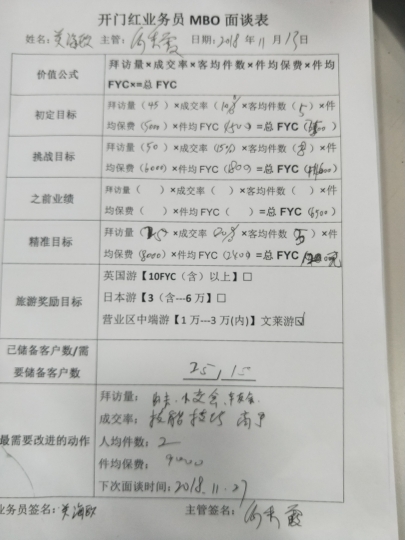 开门红业务员 MBO 面谈表
姓名: 主管: 日期: 2018年11月13日
价值公式
拜访量×成交率×客均件数×件均保费×件均
FYC×=总 FYC
初定目标
拜访量（45）×成交率（10%）×客均件数（5）×件
均保费（5000）×件均 FYC（1500）=总 FYC（ ）
挑战目标
拜访量（50）×成交率（15%）×客均件数（ ）×件
均保费（6000）×件均 FYC（1800）=总 FYC（ ）
之前业绩
拜访量（ ）×成交率（ ）×客均件数（ ）×件
均保费（ ）×件均 FYC（ ）=总 FYC（6900）
精准目标
拜访量（ ）×成交率（20%）×客均件数（ ）×件
均保费（8000）×件均 FYC（2400）=总 FYC（ ）
旅游奖励目标
英国游【10FYC（含）以上】☐
日本游【3（含---6 万】☐
营业区中端游【1 万---3 万(内)】文莱游☑
已储备客户数/需
要储备客户数
25，15
最需要改进的动作
拜访量：
成交率：
人均件数：2
件均保费：9000
下次面谈时间：2018.11.27
业务员签名： 主管签名：